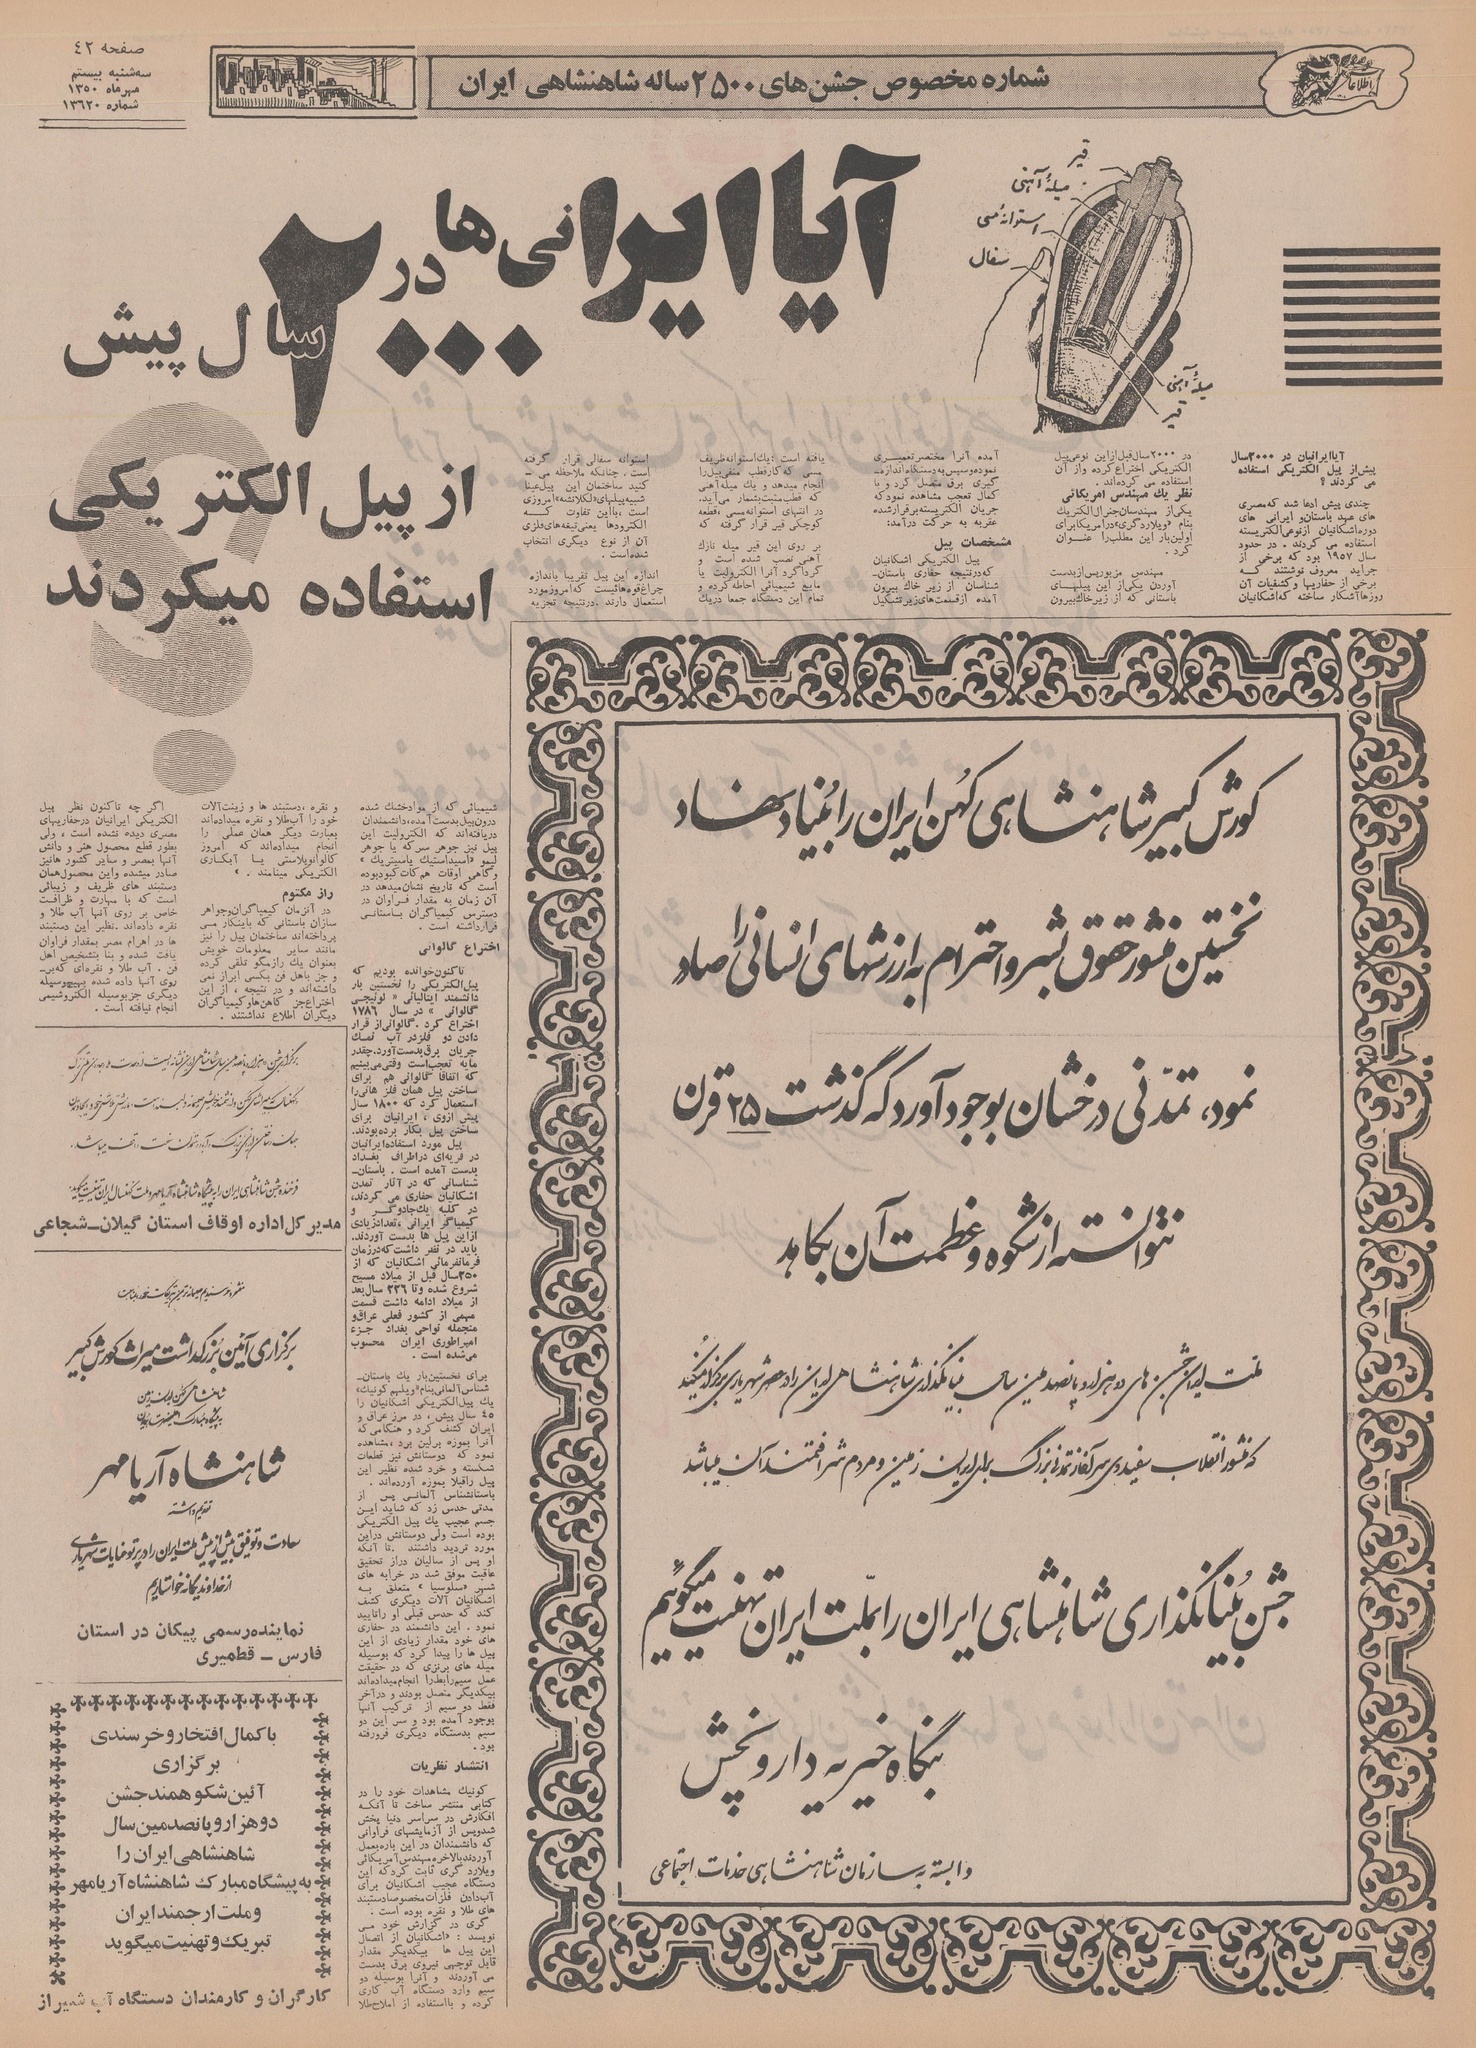 صفحه ۴۲
سه‌شنبه بیستم
مهرماه ۱۳۵۰
شماره ۱۳۶۲۰
شماره مخصوص جشن‌های ۲۵۰۰ ساله شاهنشاهی ایران
اطلاعات
آیا ایرانی‌ها در ۲۰۰۰
سال پیش
از پیل الکتریکی
استفاده میکردند
؟
قیر
میلهٔ آهنی
استوانهٔ مسی
سفال
میلهٔ آهنی
قیر
آیا ایرانیان در ۲۰۰۰ سال
پیش از پیل الکتریکی استفاده
می کردند ؟
چندی پیش ادعا شد که مصری
های عهد باستان و ایرانی های
دوره اشکانیان از نوعی الکتریسته
استفاده می کردند . در حدود
سال ۱۹۵۷ بود که برخی از
جراید معروف نوشتند که
برخی از حفاریها و کشفیات آن
روزها آشکار ساخته که اشکانیان
در ۲۰۰۰ سال قبل از این نوعی پیل
الکتریکی اختراع کرده و از آن
استفاده می کرده‌اند .
نظر یك مهندس امریکائی
یکی از مهندسان جنرال الکتریك
بنام «ویلارد گری» در امریکا برای
اولین بار این مطلب را عنوان
کرد .
مهندس مزبور پس از بدست
آوردن یکی از این پیلهای
باستانی که از زیر خاك بیرون
آمده آنرا مختصر تعمیری
نموده و سپس به دستگاه اندازه‌ـ
گیری برق متصل کرد و با
کمال تعجب مشاهده نمود که
جریان الکتریسته برقرار شده
عقربه به حرکت درآمد:
مشخصات پیل
پیل الکتریکی اشکانیان
که در نتیجه حفاری باستان‌ـ
شناسان از زیر خاك بیرون
آمده از قسمت‌های زیر تشکیل
یافته است : یك استوانه ظریف
مسی که کار قطب منفی پیل را
انجام میدهد و یك میله آهنی
که قطب مثبت بشمار می‌آید.
در انتهای استوانه مسی ، قطعه
کوچکی قیر قرار گرفته که
بر روی این قیر میله نازك
آهنی نصب شده است و
گرداگرد آنرا الکترولیت یا
مایع شیمیائی احاطه کرده و
تمام این دستگاه جمعا در یك
استوانه سفالی قرار گرفته
است . چنانکه ملاحظه می‌ـ
کنید ساختمان این پیل عینا
شبیه پیلهای «لکلانشه» امروزی
است ، با این تفاوت که
الکترودها یعنی تیغه‌های فلزی
آن از نوع دیگری انتخاب
شده است .
اندازه این پیل تقریبا باندازه
چراغ قوه‌هائیست که امروز مورد
استعمال دارند . در نتیجه تجزیه
شیمیائی که از مواد خشك شده
درون پیل بدست آمده ، دانشمندان
دریافته‌اند که الکترولیت این
پیل نیز جوهر سرکه یا جوهر
لیمو «اسید استیك یا سیتریك»
وگاهی اوقات هم کات کبود بوده
است که تاریخ نشان میدهد در
آن زمان به مقدار فراوان در
دسترس کیمیاگران باستانی
قرار داشته است .
اختراع گالوانی
تاکنون خوانده بودیم که
پیل الکتریکی را نخستین بار
دانشمند ایتالیائی « لوئیجی
گالوانی » در سال ۱۷۸۶
اختراع کرد . گالوانی از قرار
دادن دو فلز در آب نمك
جریان برق بدست آورد. چقدر
مایه تعجب است وقتی می‌بینیم
که اتفاقا گالوانی هم برای
ساختن پیل همان فلز هائی را
استعمال کرد که ۱۸۰۰ سال
پیش از وی ، ایرانیان برای
ساختن پیل بکار برده بودند.
پیل مورد استفاده ایرانیان
در قریه‌ای در اطراف بغداد
بدست آمده است . باستان‌ـ
شناسانی که در آثار تمدن
اشکانیان حفاری می کردند،
در کلبه یك جادوگر و
کیمیاگر ایرانی ، تعداد زیادی
از این پیل ها بدست آوردند.
باید در نظر داشت که در زمان
فرمانفرمائی اشکانیان که از
۲۵۰ سال قبل از میلاد مسیح
شروع شده و تا ۲۲۶ سال بعد
از میلاد ادامه داشت قسمت
مهمی از کشور فعلی عراق و
منجمله نواحی بغداد جزء
امپراطوری ایران محسوب
می‌شده است .
برای نخستین بار یك باستان‌ـ
شناس آلمانی بنام «ویلهم کونیك»
یك پیل الکتریکی اشکانیان را
۴۵ سال پیش ، در مرز عراق و
ایران کشف کرد و هنگامی که
آنرا بموزه برلین برد ، مشاهده
نمود که دوستانش نیز قطعات
شکسته و خرد شده نظیر این
پیل را قبلا بموزه آورده‌اند .
باستانشناس آلمانی پس از
مدتی حدس زد که شاید این
جسم عجیب یك پیل الکتریکی
بوده است ولی دوستانش در این
مورد تردید داشتند . تا آنکه
او پس از سالیان دراز تحقیق
عاقبت موفق شد در خرابه های
شهر « سلوسیا » متعلق به
اشکانیان آلات دیگری کشف
کند که حدس قبلی او را تایید
نمود . این دانشمند در حفاری
های خود مقدار زیادی از این
پیل ها را پیدا کرد که بوسیله
میله های برنزی که در حقیقت
عمل سیم رابط را انجام میداده‌اند
بیکدیگر متصل بودند و در آخر
فقط دو سیم از ترکیب آنها
بوجود آمده بود و سر این دو
سیم بدستگاه دیگری فرورفته
بود .
انتشار نظریات
کونیك مشاهدات خود را در
کتابی منتشر ساخت تا آنکه
افکارش در سراسر دنیا پخش
شد و پس از آزمایشهای فراوانی
که دانشمندان در این باره بعمل
آوردند بالاخره مهندس آمریکائی
ویلارد گری ثابت کرد که این
دستگاه عجیب اشکانیان برای
آب دادن فلزات مخصوصا دستبند
های طلا و نقره بوده است .
گری در گزارش خود می
نویسد : «اشکانیان از اتصال
این پیل ها بیکدیگر مقدار
قابل توجهی نیروی برق بدست
می آوردند و آنرا بوسیله دو
سیم وارد دستگاه آب کاری
کرده و با استفاده از املاح طلا
و نقره ، دستبند ها و زینت آلات
خود را آب طلا و نقره میداده‌اند
بعبارت دیگر همان عملی را
انجام میداده‌اند که امروز
گالوانوپلاستی یا آبکاری
الکتریکی مینامند . »
راز مکتوم
در آنزمان کیمیاگران و جواهر
سازان باستانی که باینکار می
پرداخته‌اند ساختمان پیل را نیز
مانند سایر معلومات خویش
بعنوان یك راز مگو تلقی کرده
و جز باهل فن بکسی ابراز نمی
داشته‌اند و در نتیجه ، از این
اختراع جز کاهن‌ها و کیمیاگران
دیگران اطلاع نداشتند .
اگر چه تاکنون نظر پیل
الکتریکی ایرانیان در حفاریهای
مصری دیده نشده است ، ولی
بطور قطع محصول هنر و دانش
آنها بمصر و سایر کشور ها نیز
صادر میشده و این محصول همان
دستبند های ظریف و زیبائی
است که با مهارت و ظرافت
خاص بر روی آنها آب طلا و
نقره داده‌اند. نظیر این دستبند
ها در اهرام مصر بمقدار فراوان
یافت شده و بنا بتشخیص اهل
فن . آب طلا و نقره‌ای که بر‌ـ
روی آنها داده شده بهیچوسیله
دیگری جز بوسیله الکتروشیمی
انجام نیافته است .
کورش کبیر شاهنشاهی کهن ایران را بنیاد نهاد
نخستین منشور حقوق بشر و احترام به ارزشهای انسانی را صادر
نمود، تمدّنی درخشان بوجود آورد که گذشت ۲۵ قرن
نتوانسته از شکوه و عظمت آن بکاهد
ملت ایران جشن های دوهزار و پانصدمین سال بنیانگذاری شاهنشاهی ایران را در عصر شهریاری برگزار میکند
که منشور انقلاب سفید وی سرآغاز تمدنی بزرگ برای ایران زمین و مردم شرافتمند آن میباشد
جشن بنیانگذاری شاهنشاهی ایران را بملت ایران تهنیت میگوئیم
بنگاه خیریه دارو پخش
وابسته به سازمان شاهنشاهی خدمات اجتماعی
مدیر کل اداره اوقاف استان گیلان ـ شجاعی
برگزاری آئین بزرگداشت میراث کورش کبیر
شاهنشاه آریامهر
تقدیم داشته
سعادت و توفیق بیش از پیش ملت ایران را در پرتو عنایات شهریاری
از خداوند یگانه خواستاریم
نماینده رسمی پیکان در استان
فارس ـ قطمیری
با کمال افتخار و خرسندی
برگزاری
آئین شکوهمند جشن
دوهزار و پانصدمین سال
شاهنشاهی ایران را
به پیشگاه مبارك شاهنشاه آریامهر
و ملت ارجمند ایران
تبریك و تهنیت میگوید
کارگران و کارمندان دستگاه آب شیراز